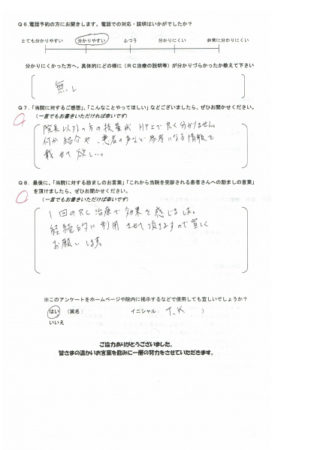 Q6.電話予約の方にお聞きします。電話での対応・説明はいかがでしたか？
とても分かりやすい 分かりやすい ふつう 分かりにくい 非常に分かりにくい
分かりにくかった方へ、具体的にどの様に（RC治療の説明等）が分かりづらかったか教えて下さい
無し
Q7.「当院に対するご感想」、「こんなことやってほしい」などございましたら、ぜひお聞かせください。
（一言でもお書きいただければ幸いです）
院長以外の方の技量が HP上で良く分かりません。
何か紹介や、患者の声など参考になる情報を
載せて欲しい。
Q8.最後に、「当院に対する励ましのお言葉」「これから当院を受診される患者さんへの励ましの言葉」
を頂けましたら、ぜひお聞かせください。
（一言でもお書きいただければ幸いです）
1回のRC治療で効果を感じました。
継続的に利用させて頂きますので宜しく
お願いします
※このアンケートをホームページや院内に掲示するなどで使用しても宜しいでしょうか？
はい （匿名： イニシャル T.K ）
いいえ
ご協力ありがとうございました。
皆さまの温かいお言葉を励みに一層の努力をさせていただきます。